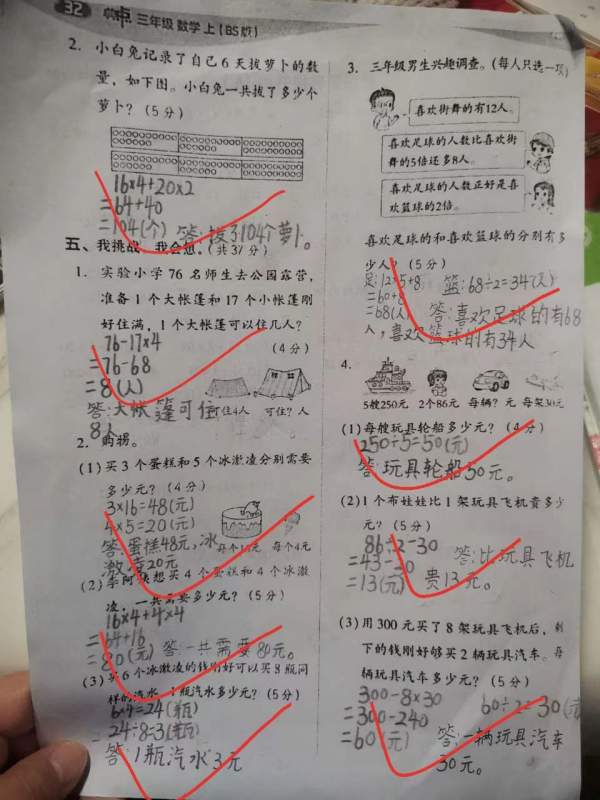 32 三年级 数学 上(BS版)
2. 小白兔记录了自己6天拔萝卜的数
量，如下图。小白兔一共拔了多少个
萝卜？(5分)
16×4+20×2
=64+40
=104(个) 答:拔了104个萝卜。
五、我挑战，我会想。(共37分)
1. 实验小学76名师生去公园露营，
准备1个大帐篷和17个小帐篷刚
好住满，1个大帐篷可以住几人？
(4分)
76-17×4
=76-68
=8(人)
答:大帐篷可住
8人。
可住4人 可住?人
2. 购物。
(1)买3个蛋糕和5个冰激凌分别需要
多少元？(4分)
3×16=48(元)
4×5=20(元)
答:蛋糕48元,冰
激凌20元
每个16元 每个4元
(2)李阿姨想买4个蛋糕和4个冰激
凌，一共需要多少元？(5分)
16×4+4×4
=64+16
=80(元) 答:一共需要80元。
(3)买6个冰激凌的钱刚好可以买8瓶同
样的汽水，1瓶汽水多少元？(5分)
6×4=24(瓶)
24÷8=3(瓶)
答:1瓶汽水3元
3. 三年级男生兴趣调查。(每人只选一项)
喜欢街舞的有12人。
喜欢足球的人数比喜欢街
舞的5倍还多8人。
喜欢足球的人数正好是喜
欢篮球的2倍。
喜欢足球的和喜欢篮球的分别有多
少人？(5分)
足:12×5+8 篮:68÷2=34(人)
=60+8
=68(人) 答:喜欢足球的有68
人,喜欢篮球的有34人
4.
5艘250元 2个86元 每辆?元 每架30元
(1)每艘玩具轮船多少元？(4分)
250÷5=50(元)
答:玩具轮船50元。
(2)1个布娃娃比1架玩具飞机贵多少
元？(5分)
86÷2-30
=43-30
=13(元)
答:比玩具飞机
贵13元。
(3)用300元买了8架玩具飞机后，剩
下的钱刚好够买2辆玩具汽车。每
辆玩具汽车多少元？(5分)
300-8×30 60÷2=30(元
=300-240
=60(元) 答:一辆玩具汽车
30元。